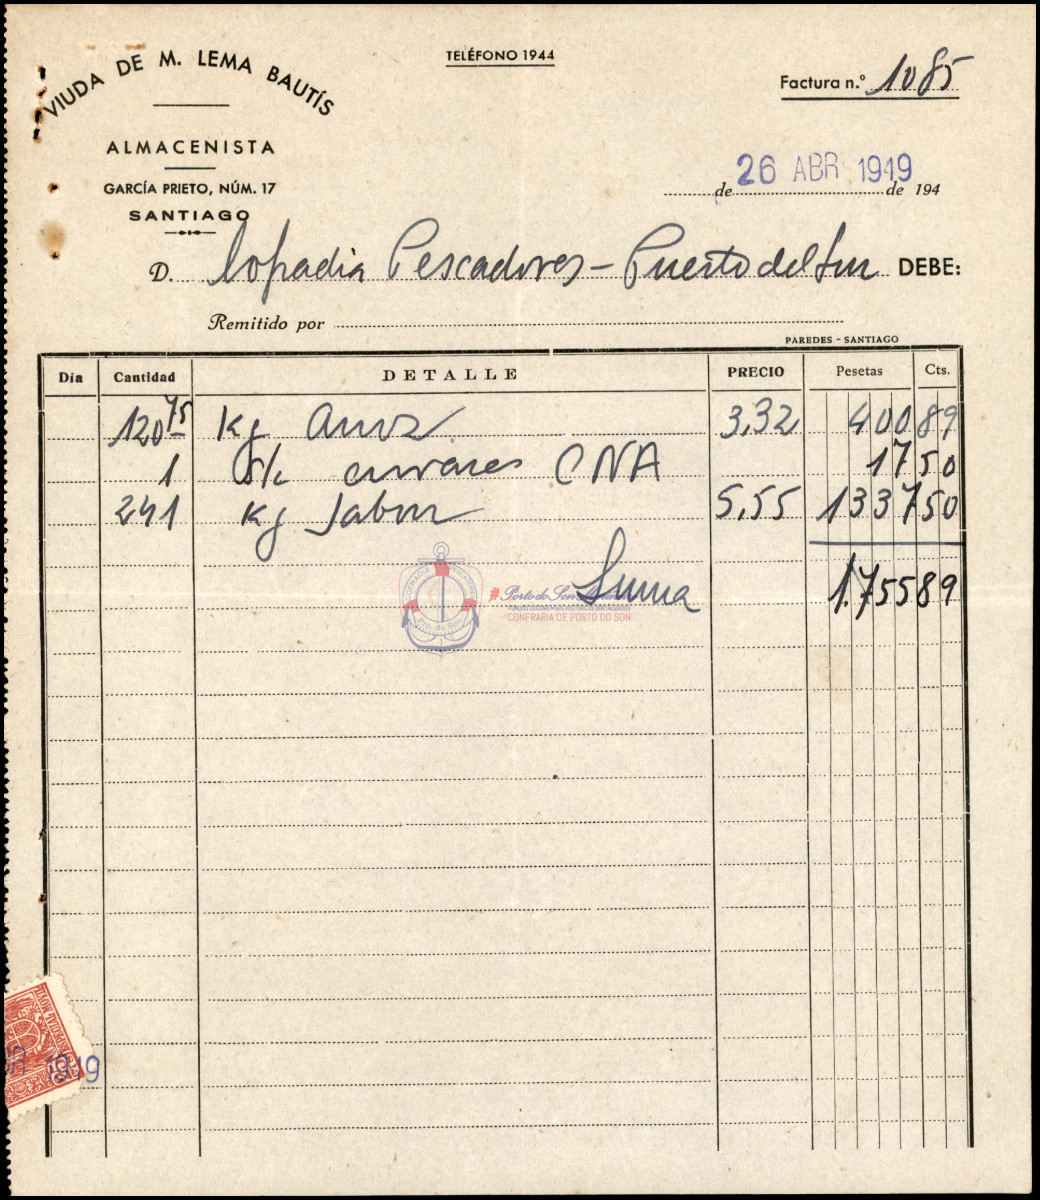 VIUDA DE M. LEMA BAUTÍS
TELÉFONO 1944
Factura n.º 1085
ALMACENISTA
GARCÍA PRIETO, NÚM. 17
SANTIAGO
26 ABR 1949
de de 194
D. Cofradia Pescadores - Puerto del Son DEBE:
Remitido por
PAREDES - SANTIAGO
Día Cantidad DETALLE PRECIO Pesetas Cts.
120 75 Kg Arroz 3,32 400 89
1 S/c envases CNA 17 50
241 Kg Jabon 5,55 1337 50
Suma 1.755 89
Pto. do Son
#Porto do Son
CONFRARIA DE PORTO DO SON
ESPECIAL MOVIL